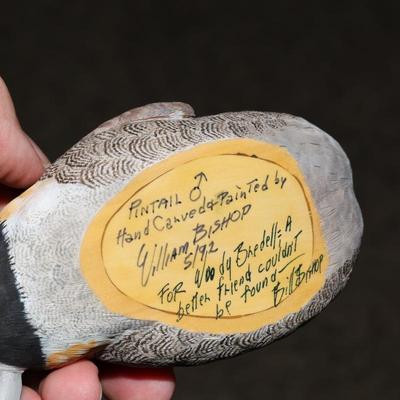 PINTAIL ♂
Hand Carved & Painted by
William BISHOP
5/92
FOR Woody Bredell: A
better friend couldn't
be found —
Bill Bishop